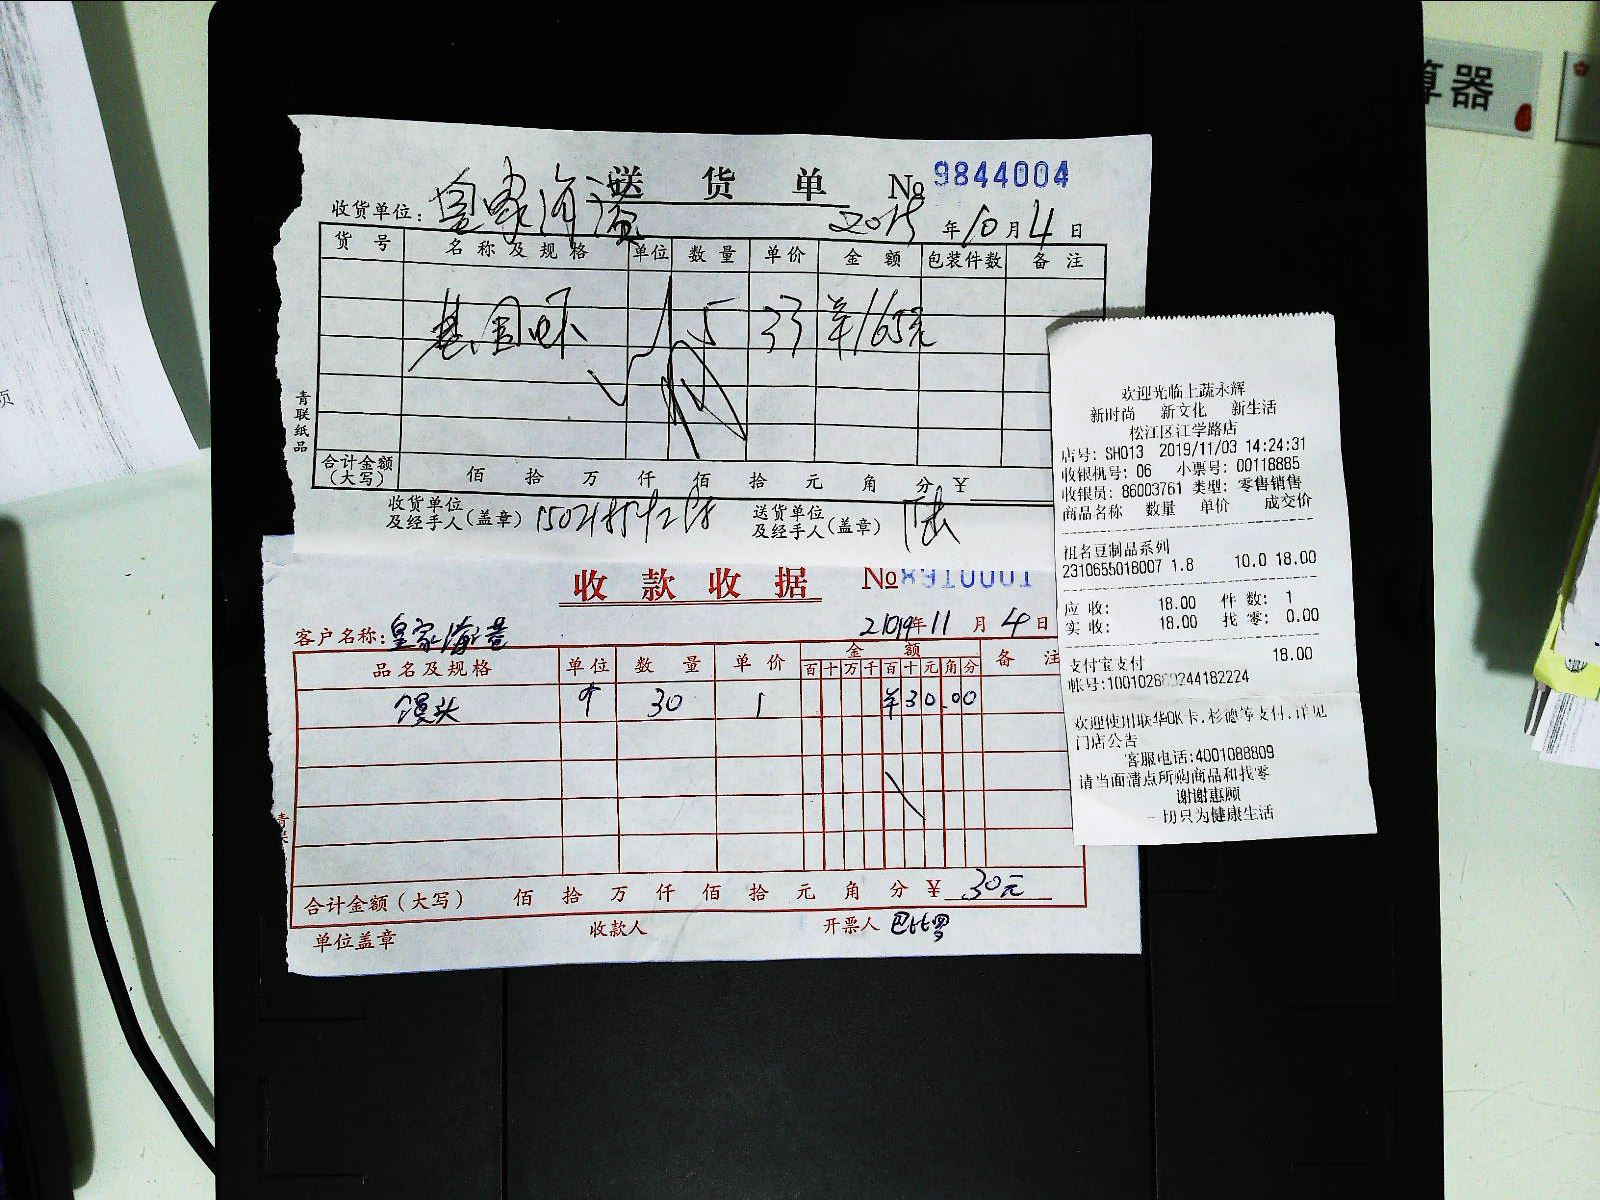 算器
送货单 № 9844004
收货单位：皇家海港 2019年10月4日
货号 名称及规格 单位 数量 单价 金额 包装件数 备注
基围虾 5 33 羊165元
青联纸品
合计金额（大写） 佰 拾 万 仟 佰 拾 元 角 分 ¥
收货单位及经手人（盖章） 送货单位及经手人（盖章）
收款收据 № 8910001
客户名称：皇家海港 2019年11月4日
品名及规格 单位 数量 单价 金额 备注
百 十 万 千 百 十 元 角 分
馒头 个 30 1 ¥30.00
合计金额（大写） 佰 拾 万 仟 佰 拾 元 角 分 ¥ 30元
单位盖章 收款人 开票人 巴比罗
欢迎光临上蔬永辉
新时尚 新文化 新生活
松江区江学路店
店号: SH013 2019/11/03 14:24:31
收银机号: 06 小票号: 00118885
收银员: 86003761 类型: 零售销售
商品名称 数量 单价 成交价
祖名豆制品系列
2310655018007 1.8 10.0 18.00
应收: 18.00 件数: 1
实收: 18.00 找零: 0.00
支付宝支付 18.00
帐号:
欢迎使用联华OK卡,杉德等支付,详见
门店公告
客服电话:4001088809
请当面清点所购商品和找零
谢谢惠顾
一切只为健康生活